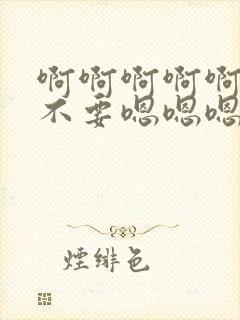 啊啊啊啊啊
不要嗯嗯嗯
煙緋色